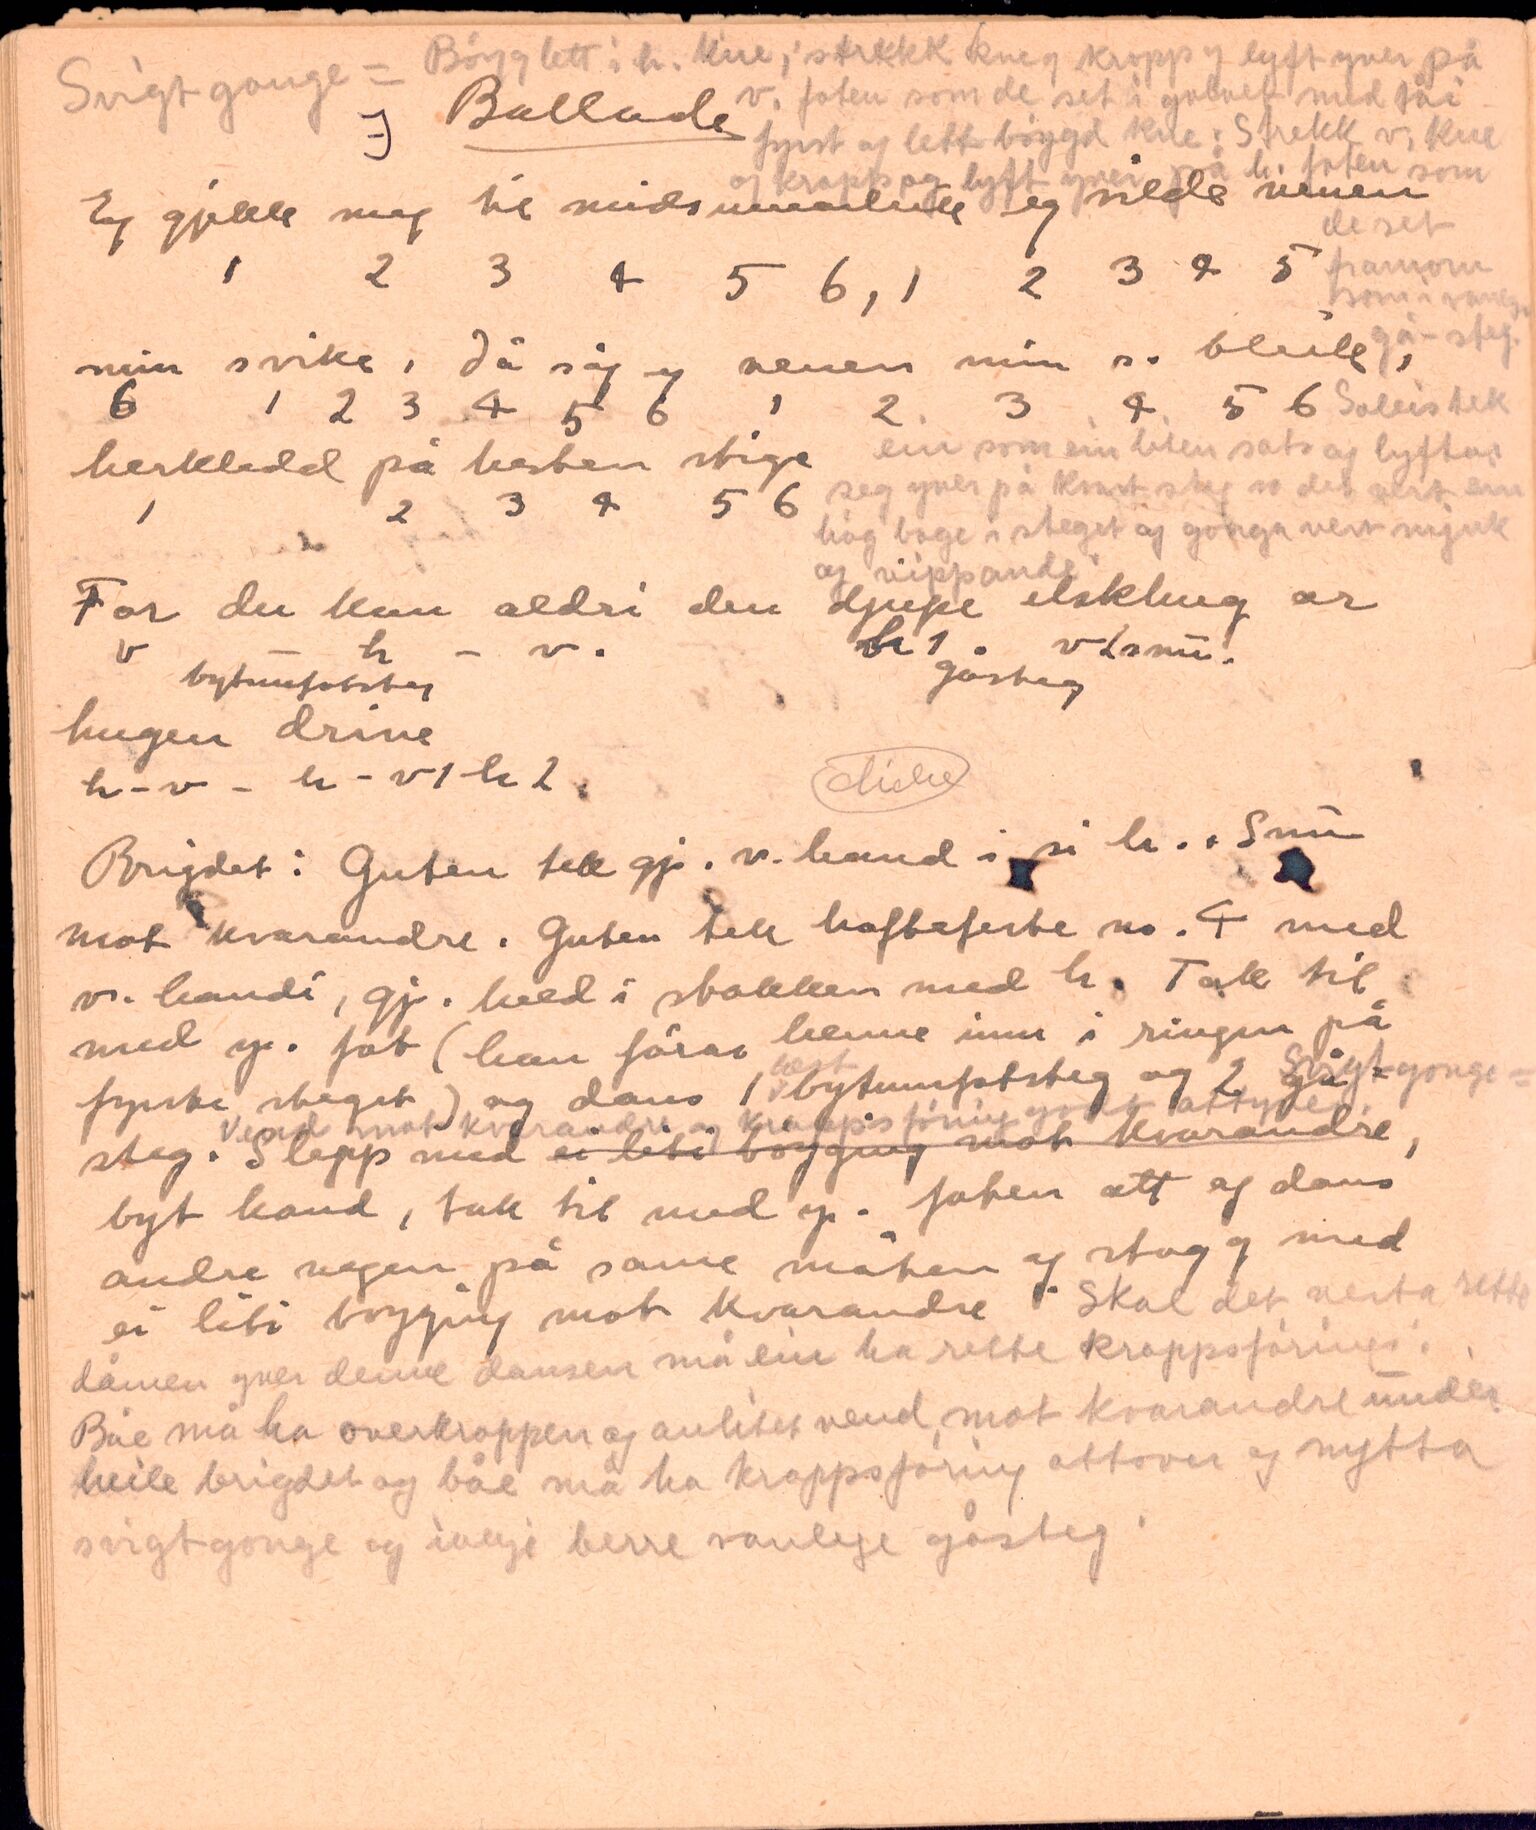 Svigtgonge = Bøyg lett i h. kne, strekk kne og kropp og lyft yver på
v. foten som de set i golvet med tåi
fyrst og lett bøygd kne. Strekk v. kne
og kropp og lyft yver på h. foten som
de set
framom
som i vanleg
gå-steg.
Soleis tek
ein som ein liten sats og lyftar
seg yver på kvart steg so det vert ein
håg boge i steget og gonga vert mjuk
og vippande.
Ballade
Eg gjekk meg til midsumarleik eg vilde venen
1 2 3 4 5 6, 1 2 3 4 5
min svike, då såg eg venen min so bleik,
6 1 2 3 4 5 6 1 2 3 4 5 6
herkledd på hesten stige
1 2 3 4 5 6
For du kan aldri den djupe elskhug or
v - h - v. h 1. v 2 snu.
bytumfotsteg gåsteg
hugen drive
h - v - h - v 1 - h 2.
Brigdet: Guten tek gj. v. hand i si h. Snu
mot kvarandre. Guten tek hofteferte no. 4 med
v. handi, gj. held i stakken med h. Tak til
med y. fot (han fører henne inn i ringen på
fyrste steget) og dans 1 bytumfotsteg og 2 gå-
Svigtgonge =
steg. Slepp med ei liti bøyging mot kvarandre,
Vend mot kvarandre og kroppsføring godt attyver
byt hand, tak til med y. foten att og dans
andre vegen på same måten og stogg med
ei liti bøyging mot kvarandre. Skal det verta rette
dåmen yver denne dansen må ein ha rette kroppsføringi.
Båe må ha overkroppen og anlitet vend mot kvarandre under
heile brigdet og båe må ha kroppsføring attover og nytta
svigtgonge og ikkje berre vanlege gåsteg.